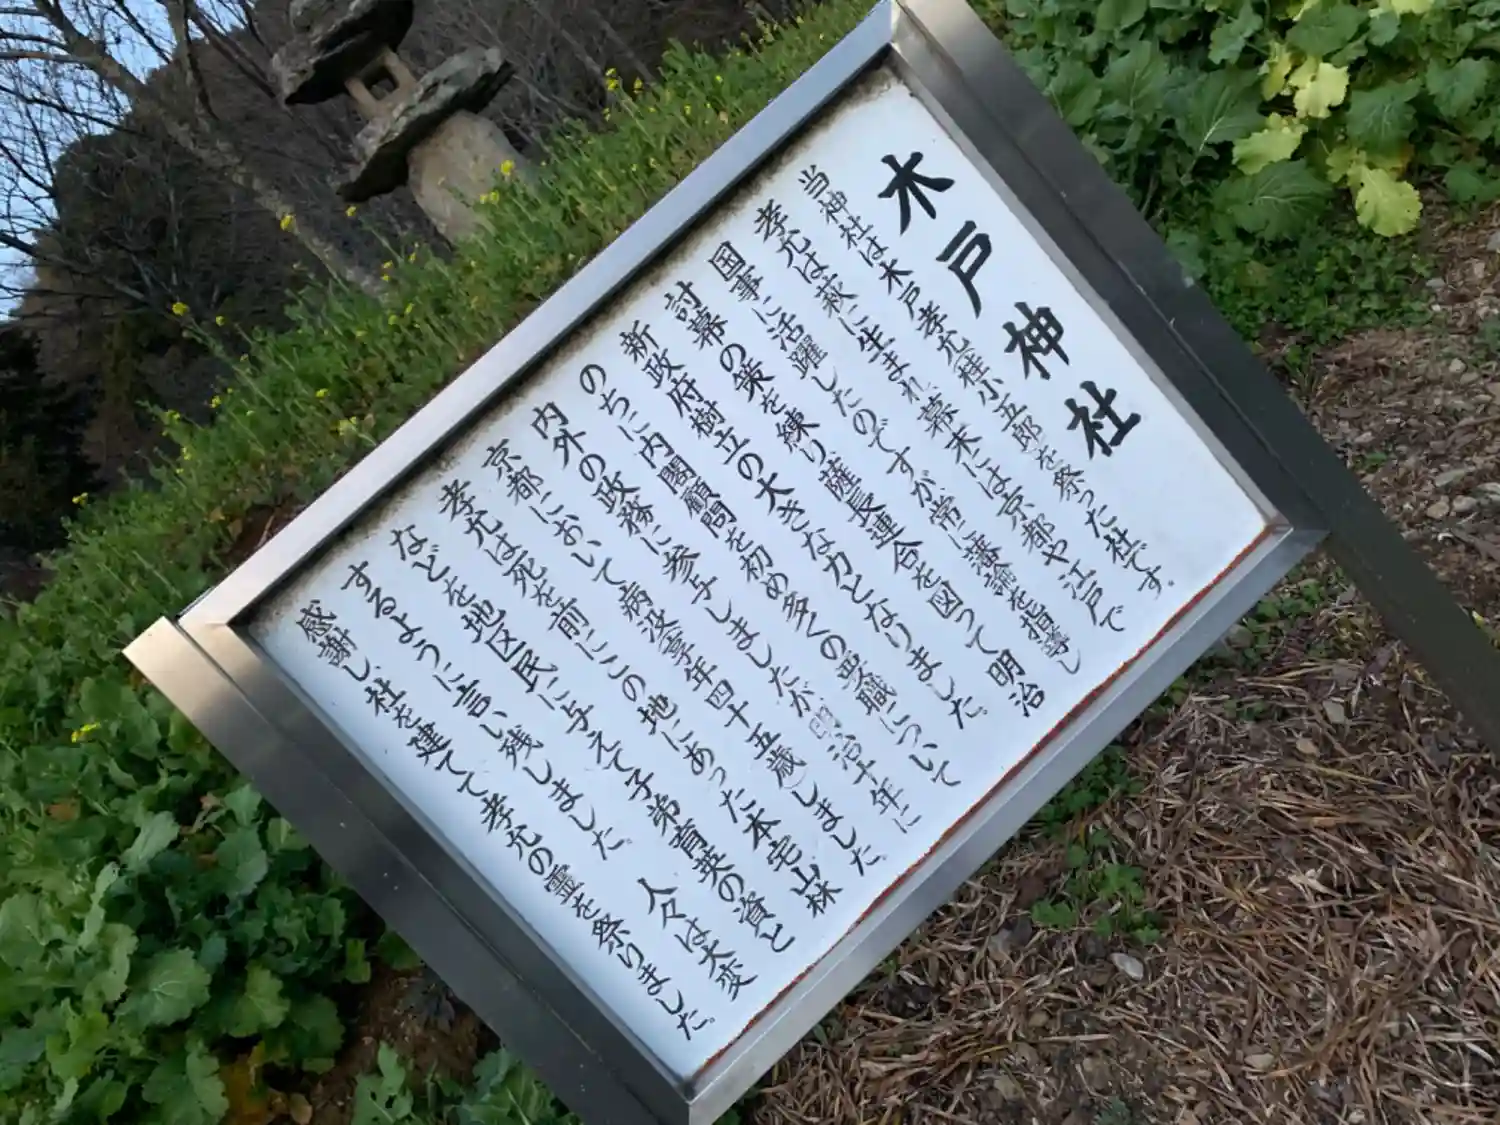 木戸神社
当神社は木戸孝允(桂小五郎)を祭った社です。
孝允は萩に生まれ、幕末には京都や江戸で
国事に活躍したのですが常に藩論を指導し
討幕の策を練り、薩長連合を図って明治
新政府樹立の大きな力となりました。
のちに内閣顧問を初め多くの要職について
内外の政務に参与しましたが、明治十年に
京都において病没(享年四十五歳)しました。
孝允は死を前にこの地にあった本宅、山林
などを地区民に与えて子弟育英の資と
するように言い残しました。人々は大変
感謝し、社を建てて孝允の霊を祭りました。